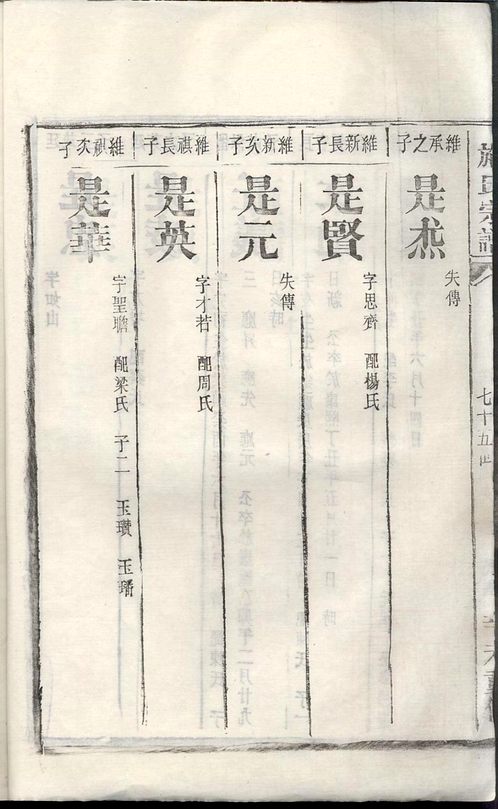 維承之子
是烝
失傳
維新長子
是賢
字思齊 配楊氏
維新次子
是元
失傳
維祺長子
是英
字才若 配周氏
維祺次子
是華
字聖瞻 配梁氏 子二 玉瓚 玉璠
七十五